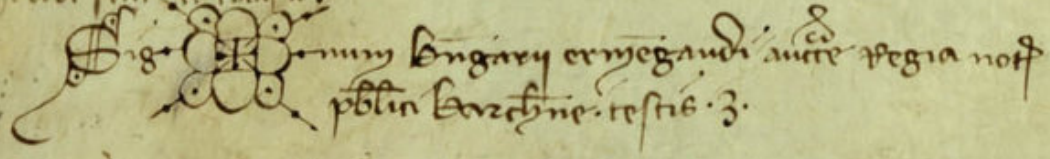 Sig num bn̄garii ermēgaudi auct̄e Regia not̄
pb̄lici barch̄ne · testis · 3 ·